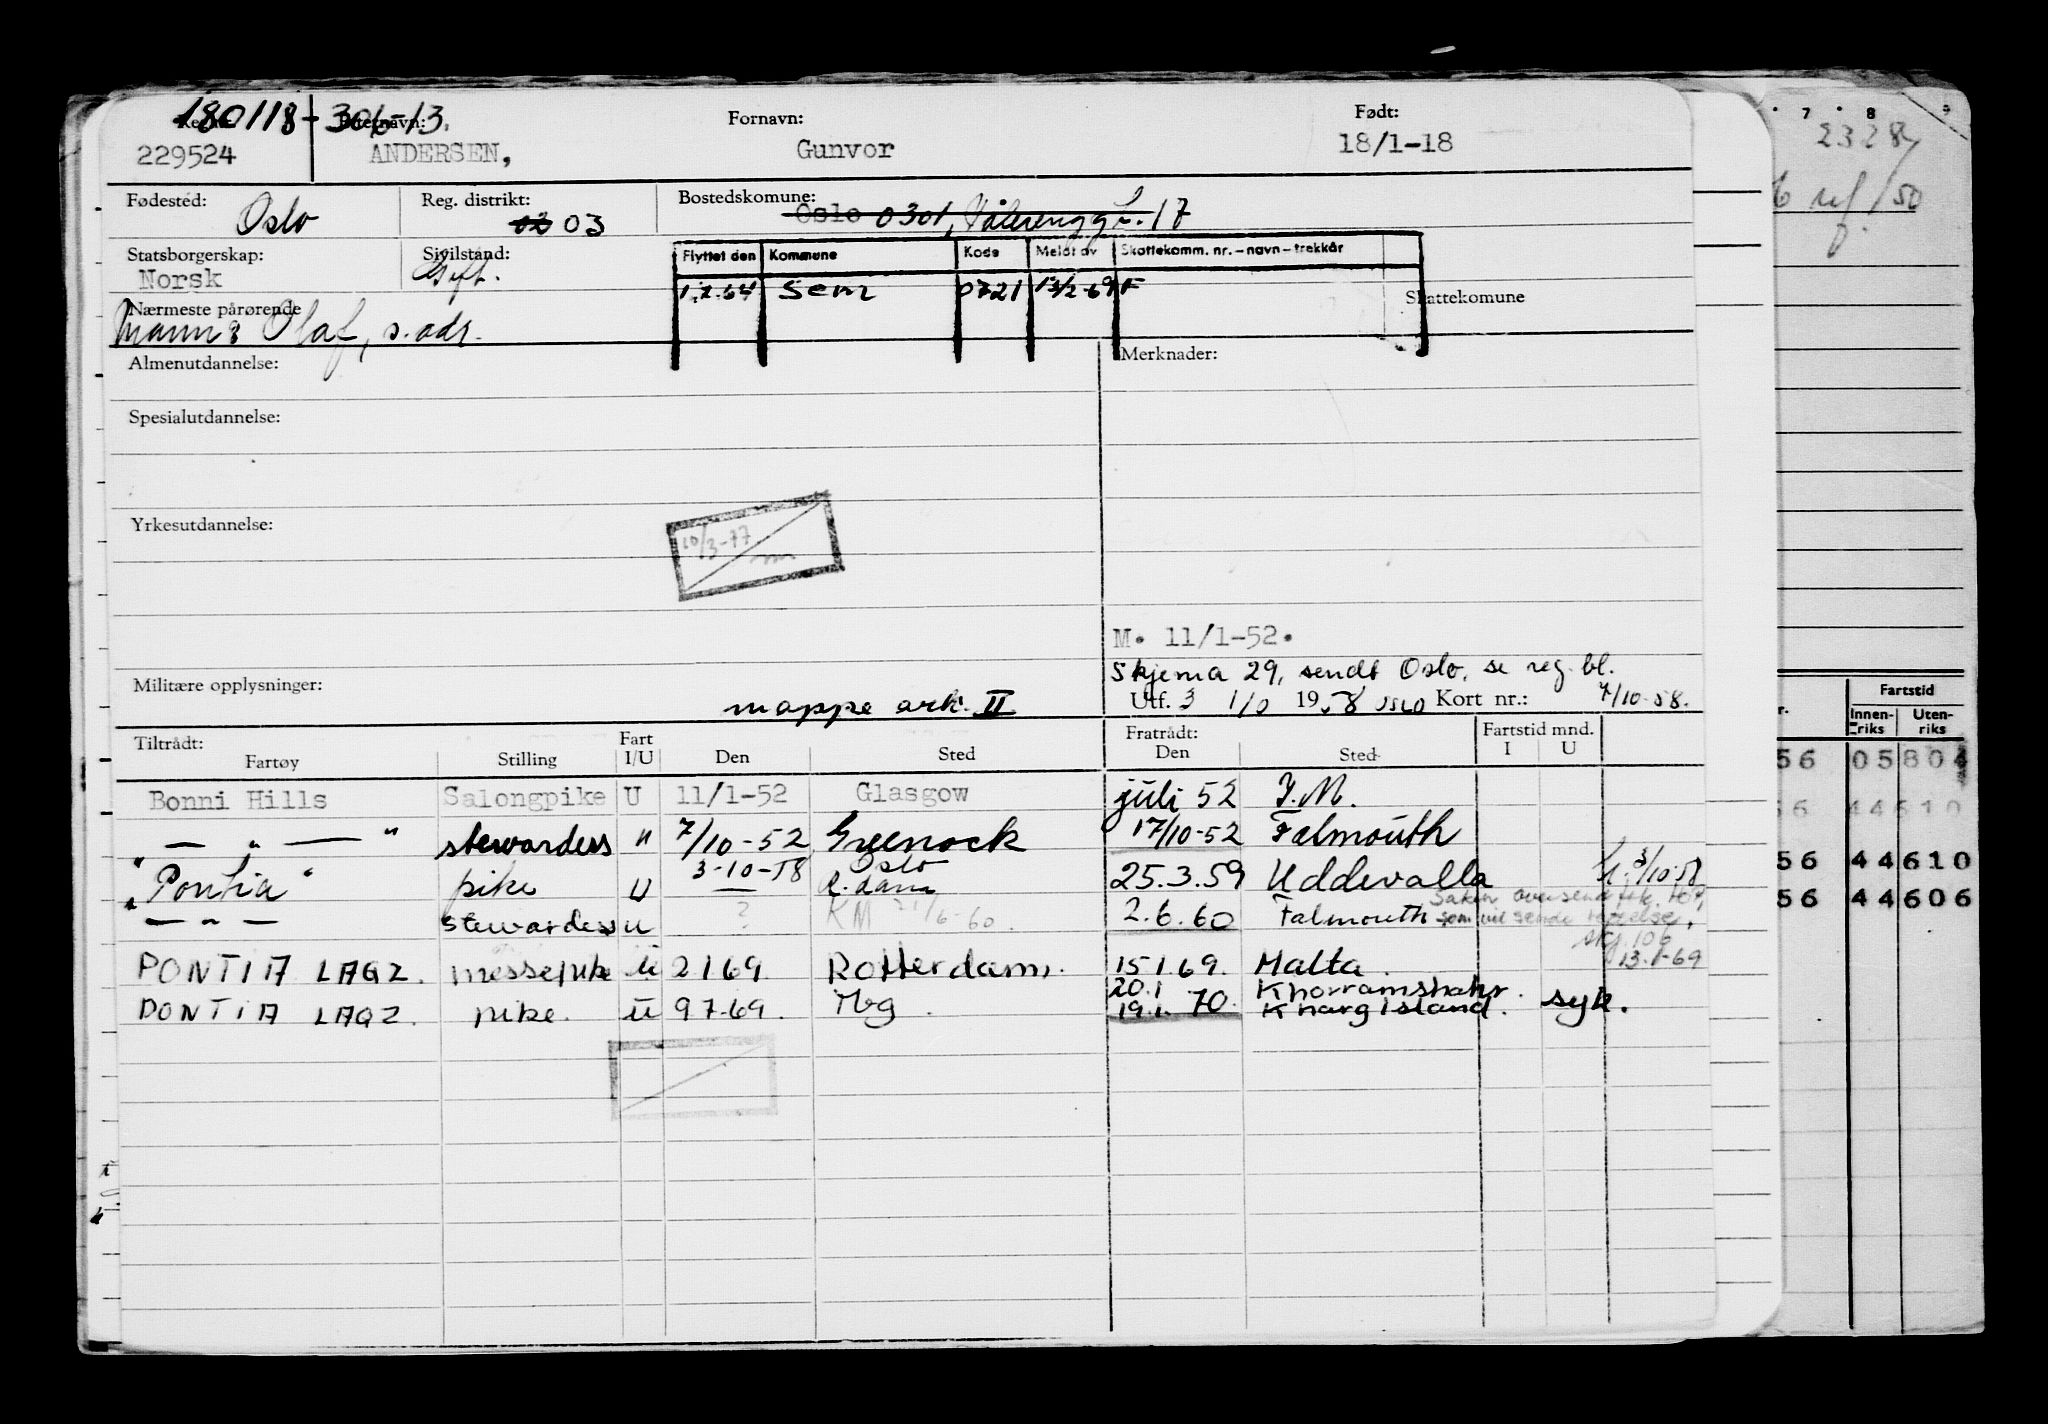 180118-306-13.
Etternavn: Fornavn: Født:
229524 ANDERSEN, Gunvor 18/1-18
Fødested: Oslo Reg. distrikt: 03 Bostedskommune: Oslo 0301, Vålerenggt. 17
Statsborgerskap: Norsk Sivilstand: Gift.
Flyttet den Kommune Kode Meldt av Skattekomm. nr. – navn – trekkår
1.2.64 Sem 0721 13/2-69 F
Skattekomune
Nærmeste pårørende
Mann: Olaf, s. adr.
Almenutdannelse: Merknader:
Spesialutdannelse:
Yrkesutdannelse:
10/3-77
M. 11/1-52.
Skjema 29, sendt Oslo, se reg. bl.
Militære opplysninger: mappe ark. II Utf. 3 1/0 1958 Oslo Kort nr.: 7/10-58.
Tiltrådt: Fart Fratrådt: Fartstid mnd.
Fartøy Stilling I/U Den Sted Den Sted I U
Bonni Hills Salongpike U 11/1-52 Glasgow juli 52 I.M.
— " — " stewardess " 7/10-52 Greenock 17/10-52 Falmouth
3-10-58 Oslo
"Pontia" pike U — R.dam 25.3.59 Uddevalla 3/10-58
— " — stewardess u ? KM 21/6-60. 2.6.60 Falmouth
som vil sende
skj. 106
13.1-69
PONTIA LAGZ. messepike u 2169. Rotterdam. 15.1.69. Malta.
20.1 Khorramshahr.
PONTIA LAGZ. pike. u 97-69. Tbg. 19.1. 70. Kharg Island. syk.
7 8 9
2328
50
Fartstid
Innenriks Utenriks
56 05804
56 44610
56 44610
56 44606